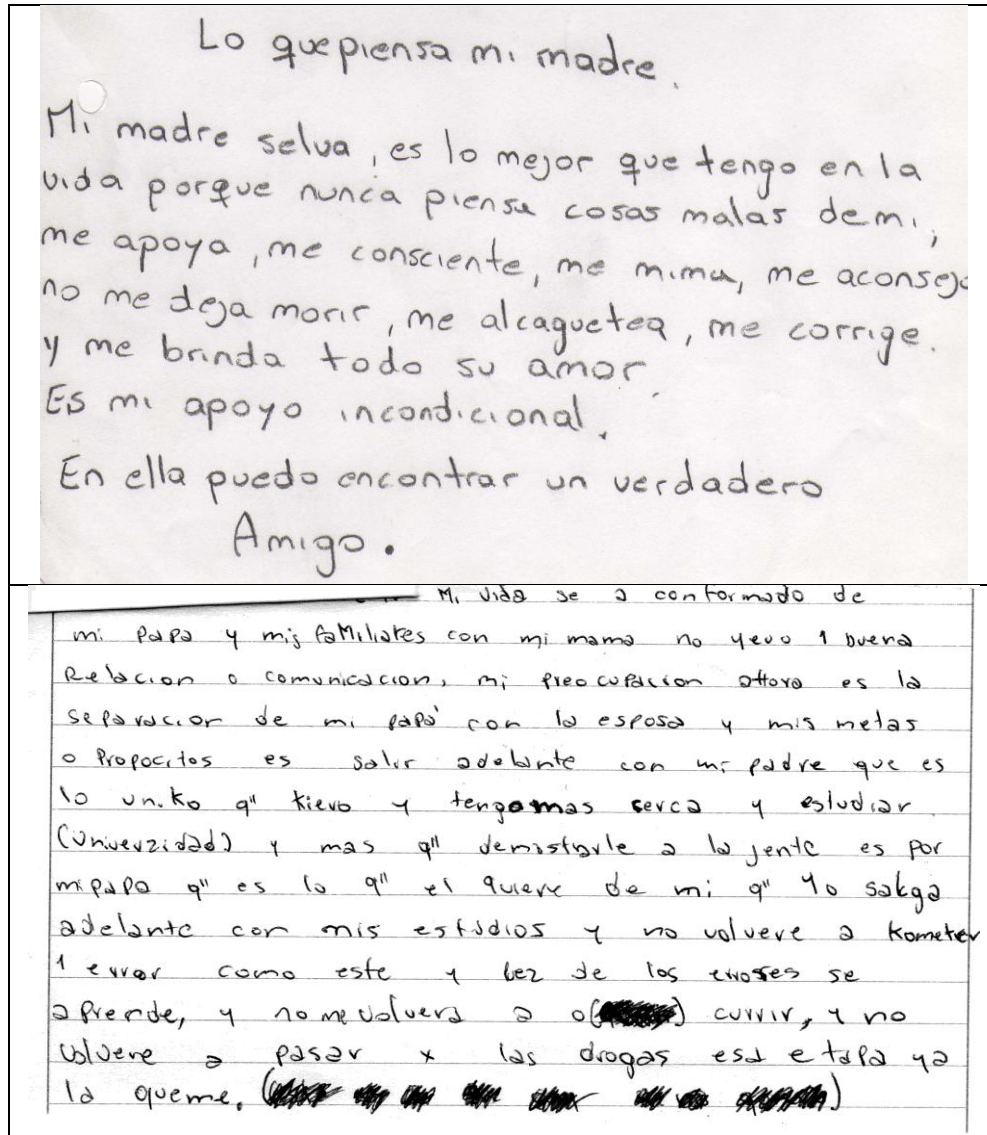 Lo que piensa mi madre.
Mi madre selva, es lo mejor que tengo en la
vida porque nunca piensa cosas malas de mi,
me apoya, me consciente, me mima, me aconseja
no me deja morir, me alcaguetea, me corrige.
y me brinda todo su amor.
Es mi apoyo incondicional.
En ella puedo encontrar un verdadero
Amigo.
Mi vida se a conformado de
mi papa y mis faMiliares con mi mama no yevo 1 buena
Relacion o comunicacion, mi preocupacion ahora es la
separacion de mi papá con la esposa y mis metas
o Propocitos es salir adelante con mi padre que es
lo uniko q" kiero y tengo mas serca y estudiar
(Univerzidad) y mas q" demistrarle a la jente es por
mi papa q" es lo q" el quiere de mi q" yo salga
adelante con mis estudios y no volvere a Kometer
1 error como este y bez de los errores se
aprende, y no me volvera a o( ) currir, y no
volvere a pasar x las drogas esa etapa ya
la queme. ( )